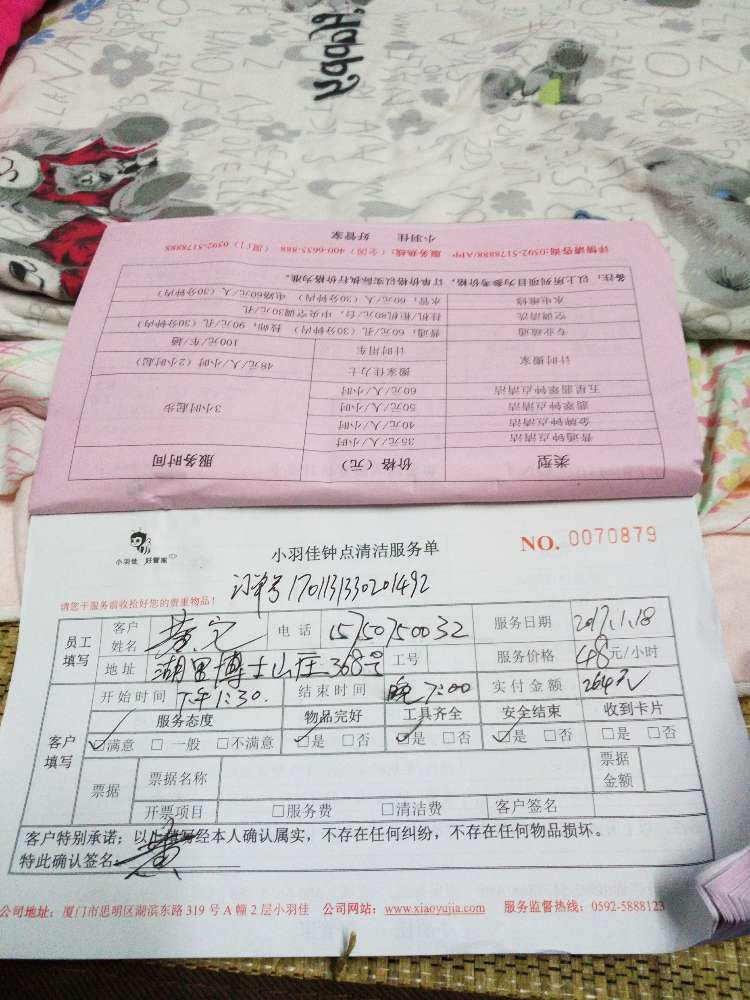 Happy
小羽佳 好管家
详情请咨询:0592-5178888/APP 服务热线:（全国）400-6635-888 （厦门）0592-5178888
备注：以上所列项目为参考价格，订单价格已实际执行价格为准。
水电维修 水管，60元/人（30分钟内） 电路60元/人（30分钟内）
空调清洗 挂机/柜机80元/台，中央空调30元/孔
专业疏通 普通，60元/孔（30分钟） 技师，90元/孔（30分钟内）
计时搬家 计时用车 100元/车/趟
搬家佳力士 48元/人/小时（2小时起）
五星翡翠钟点清洁 60元/人/小时
翡翠钟点清洁 50元/人/小时 3小时起步
金牌钟点清洁 40元/人/小时
普通钟点清洁 35元/人/小时
类型 价格（元） 服务时间
小羽佳 好管家
小羽佳钟点清洁服务单
NO. 0070879
请您于服务前收拾好您的贵重物品！
订单号1701131330201492
员工填写 客户姓名 黄 电话 15750750032 服务日期 2017.1.18
地址 湖里博士山庄368号 工号 服务价格 48元/小时
开始时间 下午1:30. 结束时间 晚7:00 实付金额 264元
客户填写 服务态度 物品完好 工具齐全 安全结束 收到卡片
☑满意 □一般 □不满意 ☑是 □否 ☑是 □否 ☑是 □否 □是 □否
票据 票据名称 票据金额
开票项目 □服务费 □清洁费 客户签名
客户特别承诺：以上填写经本人确认属实，不存在任何纠纷，不存在任何物品损坏。
特此确认签名: 黄
公司地址：厦门市思明区湖滨东路319号A幢2层小羽佳 公司网站：www.xiaoyujia.com 服务监督热线：0592-5888123